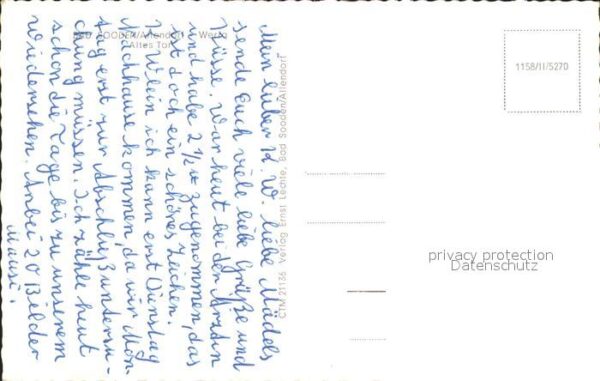 BAD SOODEN/Allendorf Werra
Altes Tor
Mein lieber K. W. liebe Mädels
sende Euch viele liebe Grüße und
Küsse. War heut bei der Ärztin
und habe 2 1/2 # zugenommen, das
ist doch ein schönes Zeichen.
? Wlein ich kann erst Dienstag
Nachhause kommen, da wir Mon-
tag erst zur Abschlußuntersu-
chung müssen. Ich zähle heut
schon die Tage bis zu unserem
Wiedersehen. Anbei 20 Bilder
Mutti.
CTM 21136 Verlag Ernst Lechte, Bad Sooden/Allendorf
1158/II/5270
privacy protection
Datenschutz